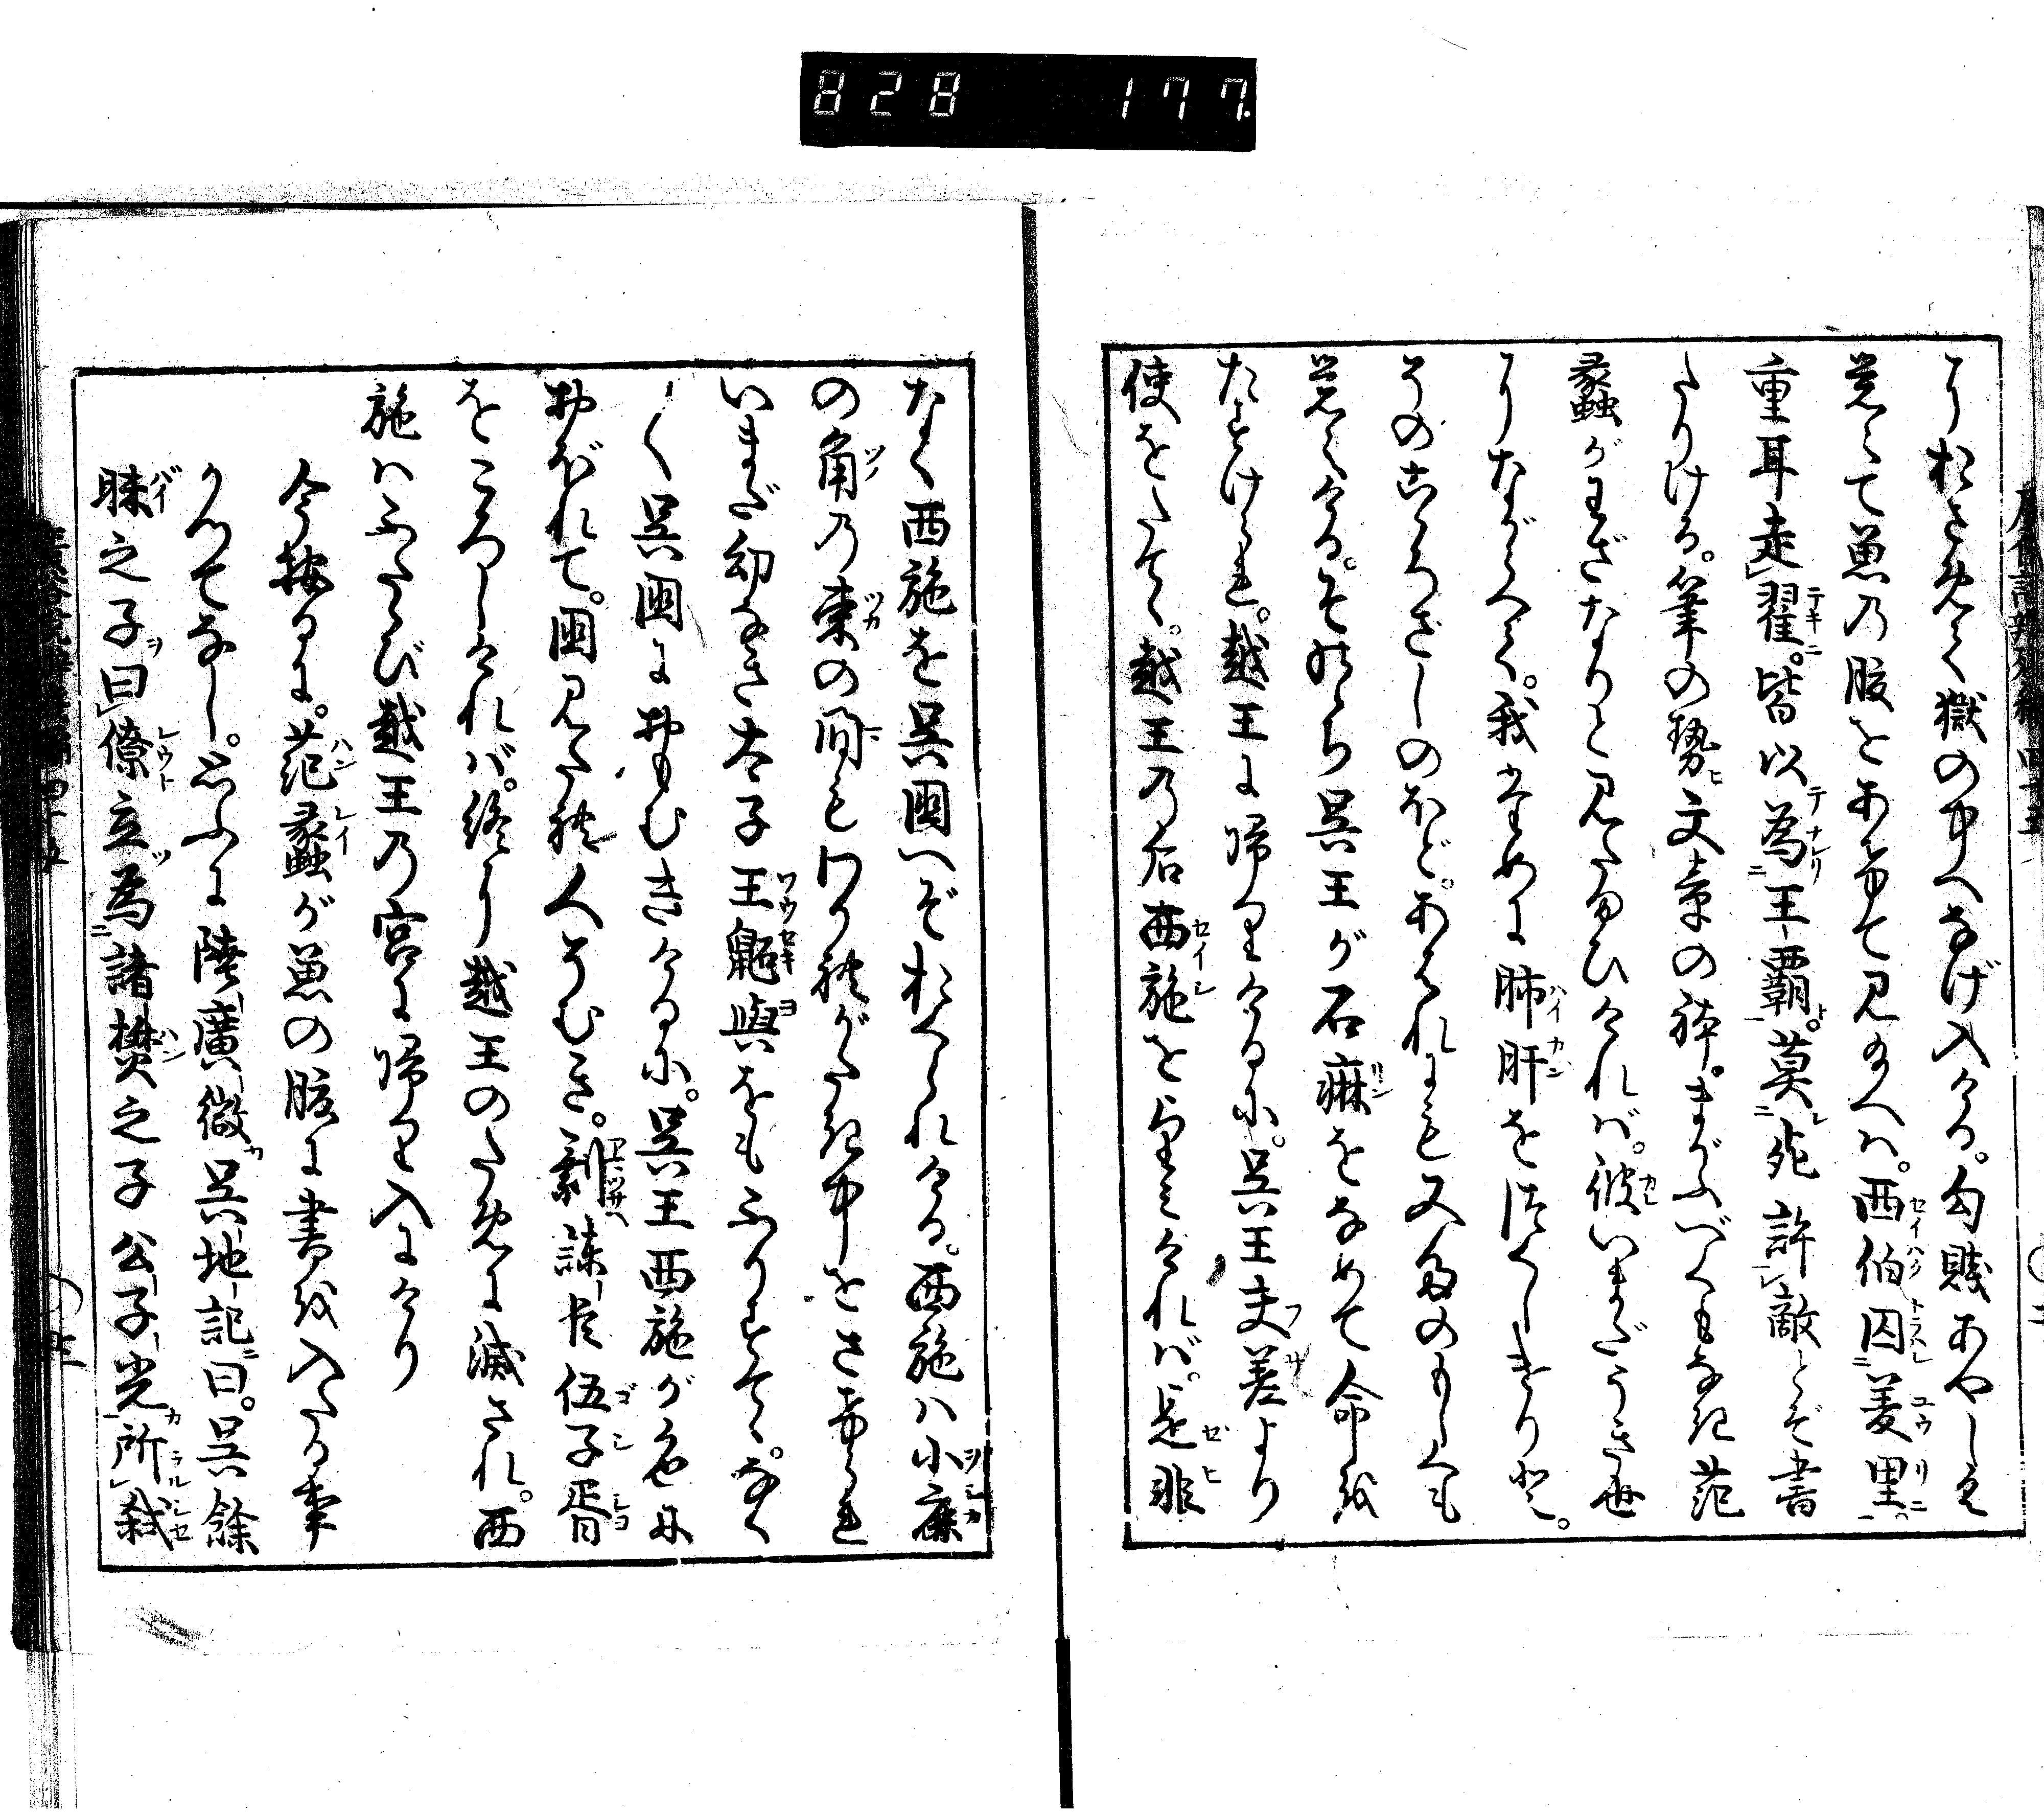 828 177.
りおさめて獄の中へなげ入ける。勾践あやしくぞ
覚えて魚の腹をあけて見給へハ。西伯囚羑里
重耳走翟。皆以為王覇。莫死許敵とぞ書
たりける。筆の勢文章の体。まがふべくもなき范
蠡がわざなりと見たまひければ。彼いまだうき世
にながらへて。我ために肺肝を尽しけりと。
そのこゝろざしのほど。あはれにも又たのもしくも
覚へける。そのゝち呉王が石痳をなめて命を
たすけられ。越王に帰りけるに。呉王夫差より
使をたてゝ。越王乃后西施を望みければ。是非
なく西施を呉国へぞおくられける。西施ハ小鹿
の角乃束の間もわかれがたき中をさけられ
いまだ幼なき太子王鼫與をもふりすてゝ。なく
〳〵呉国におもむきけるに。呉王西施が色に
おぼれて。国みだれ人そむき。剰諌臣伍子胥
をころしければ。終に越王のために滅され。西
施ハふたゝび越王乃宮に帰り入にけり
今按るに。范蠡が魚の腹に書を入たる事
かつてなし。思ふに陸廣微呉地記曰。呉餘
眛之子曰僚立為諸樊之子公子光所弑